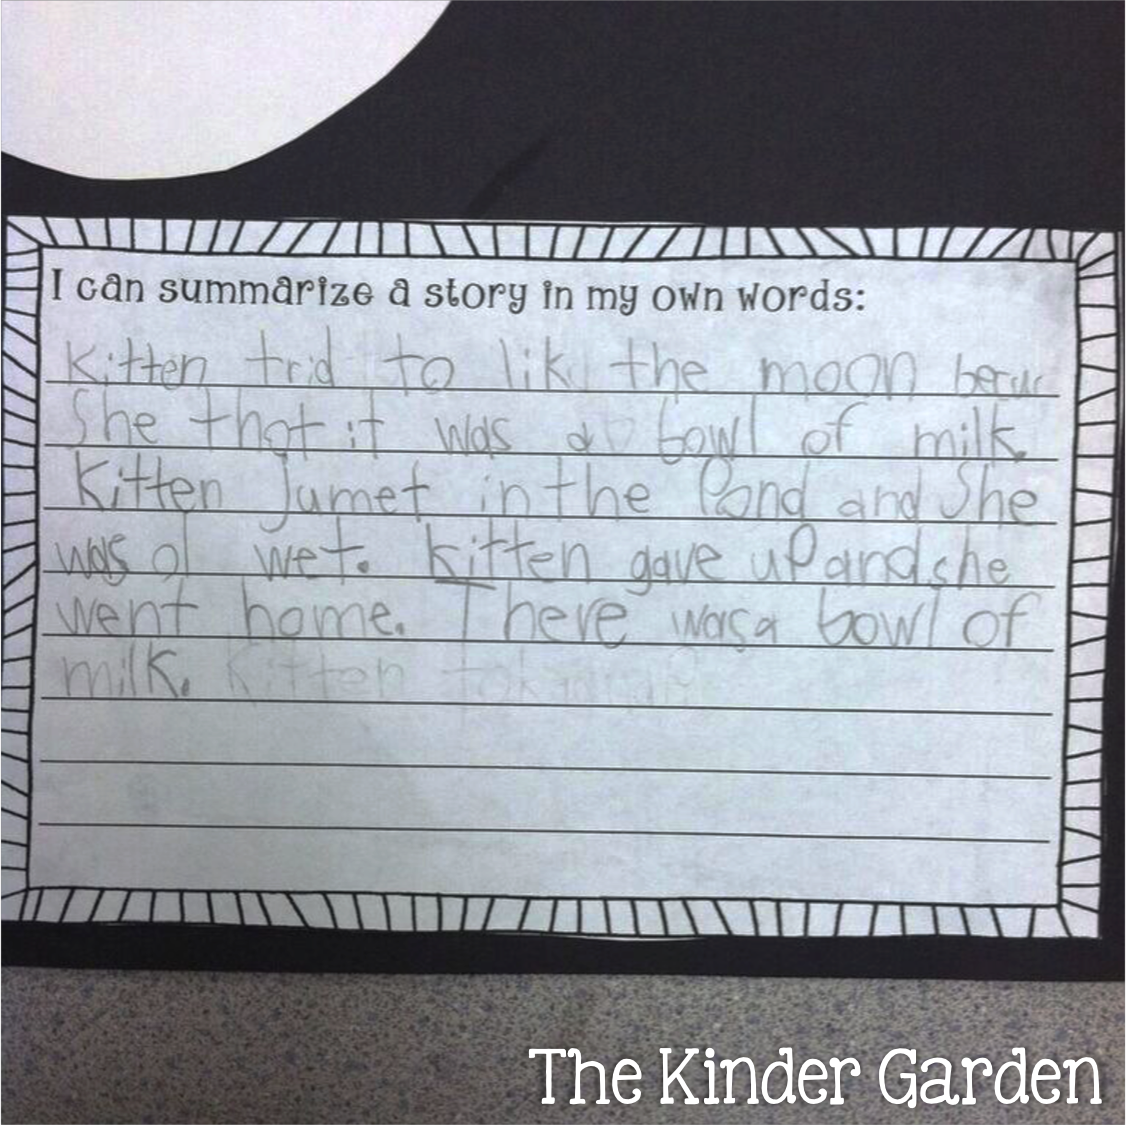 I can summarize a story in my own words:
Kitten trid to lik the moon
She thot it was a bowl of milk.
Kitten Jumet in the Pond and She
was ol wet. Kitten gave uP and she
went home. There was a bowl of
milk. Kitten
The Kinder Garden